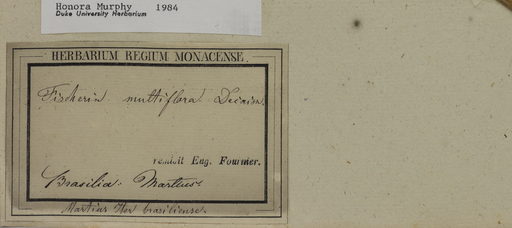 Honora Murphy 1984
Duke University Herbarium
HERBARIUM REGIUM MONACENSE.
Fischeria multiflora Decaisn.
revisit Eug. Fournier.
Brasilia: Martius
Martius Iter brasiliense.